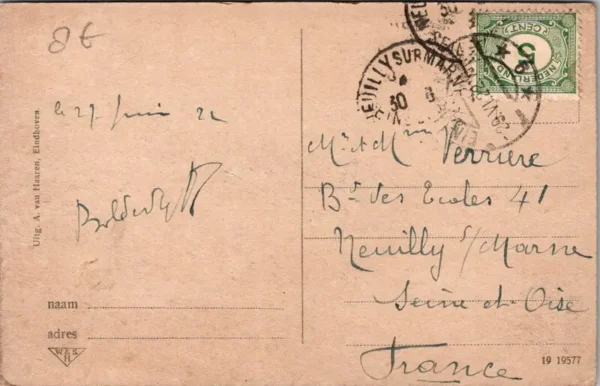 8€
le 27 juin 22
Uitg. A. van Haaren, Eindhoven.
naam
adres
W&S
H
NEUILLY SUR MARNE
30
5
NEDERLAND
CENT
Mr et Mme Verriere
Bd des Ecoles 41
Neuilly s/Marne
Seine-et-Oise
France
19 19577